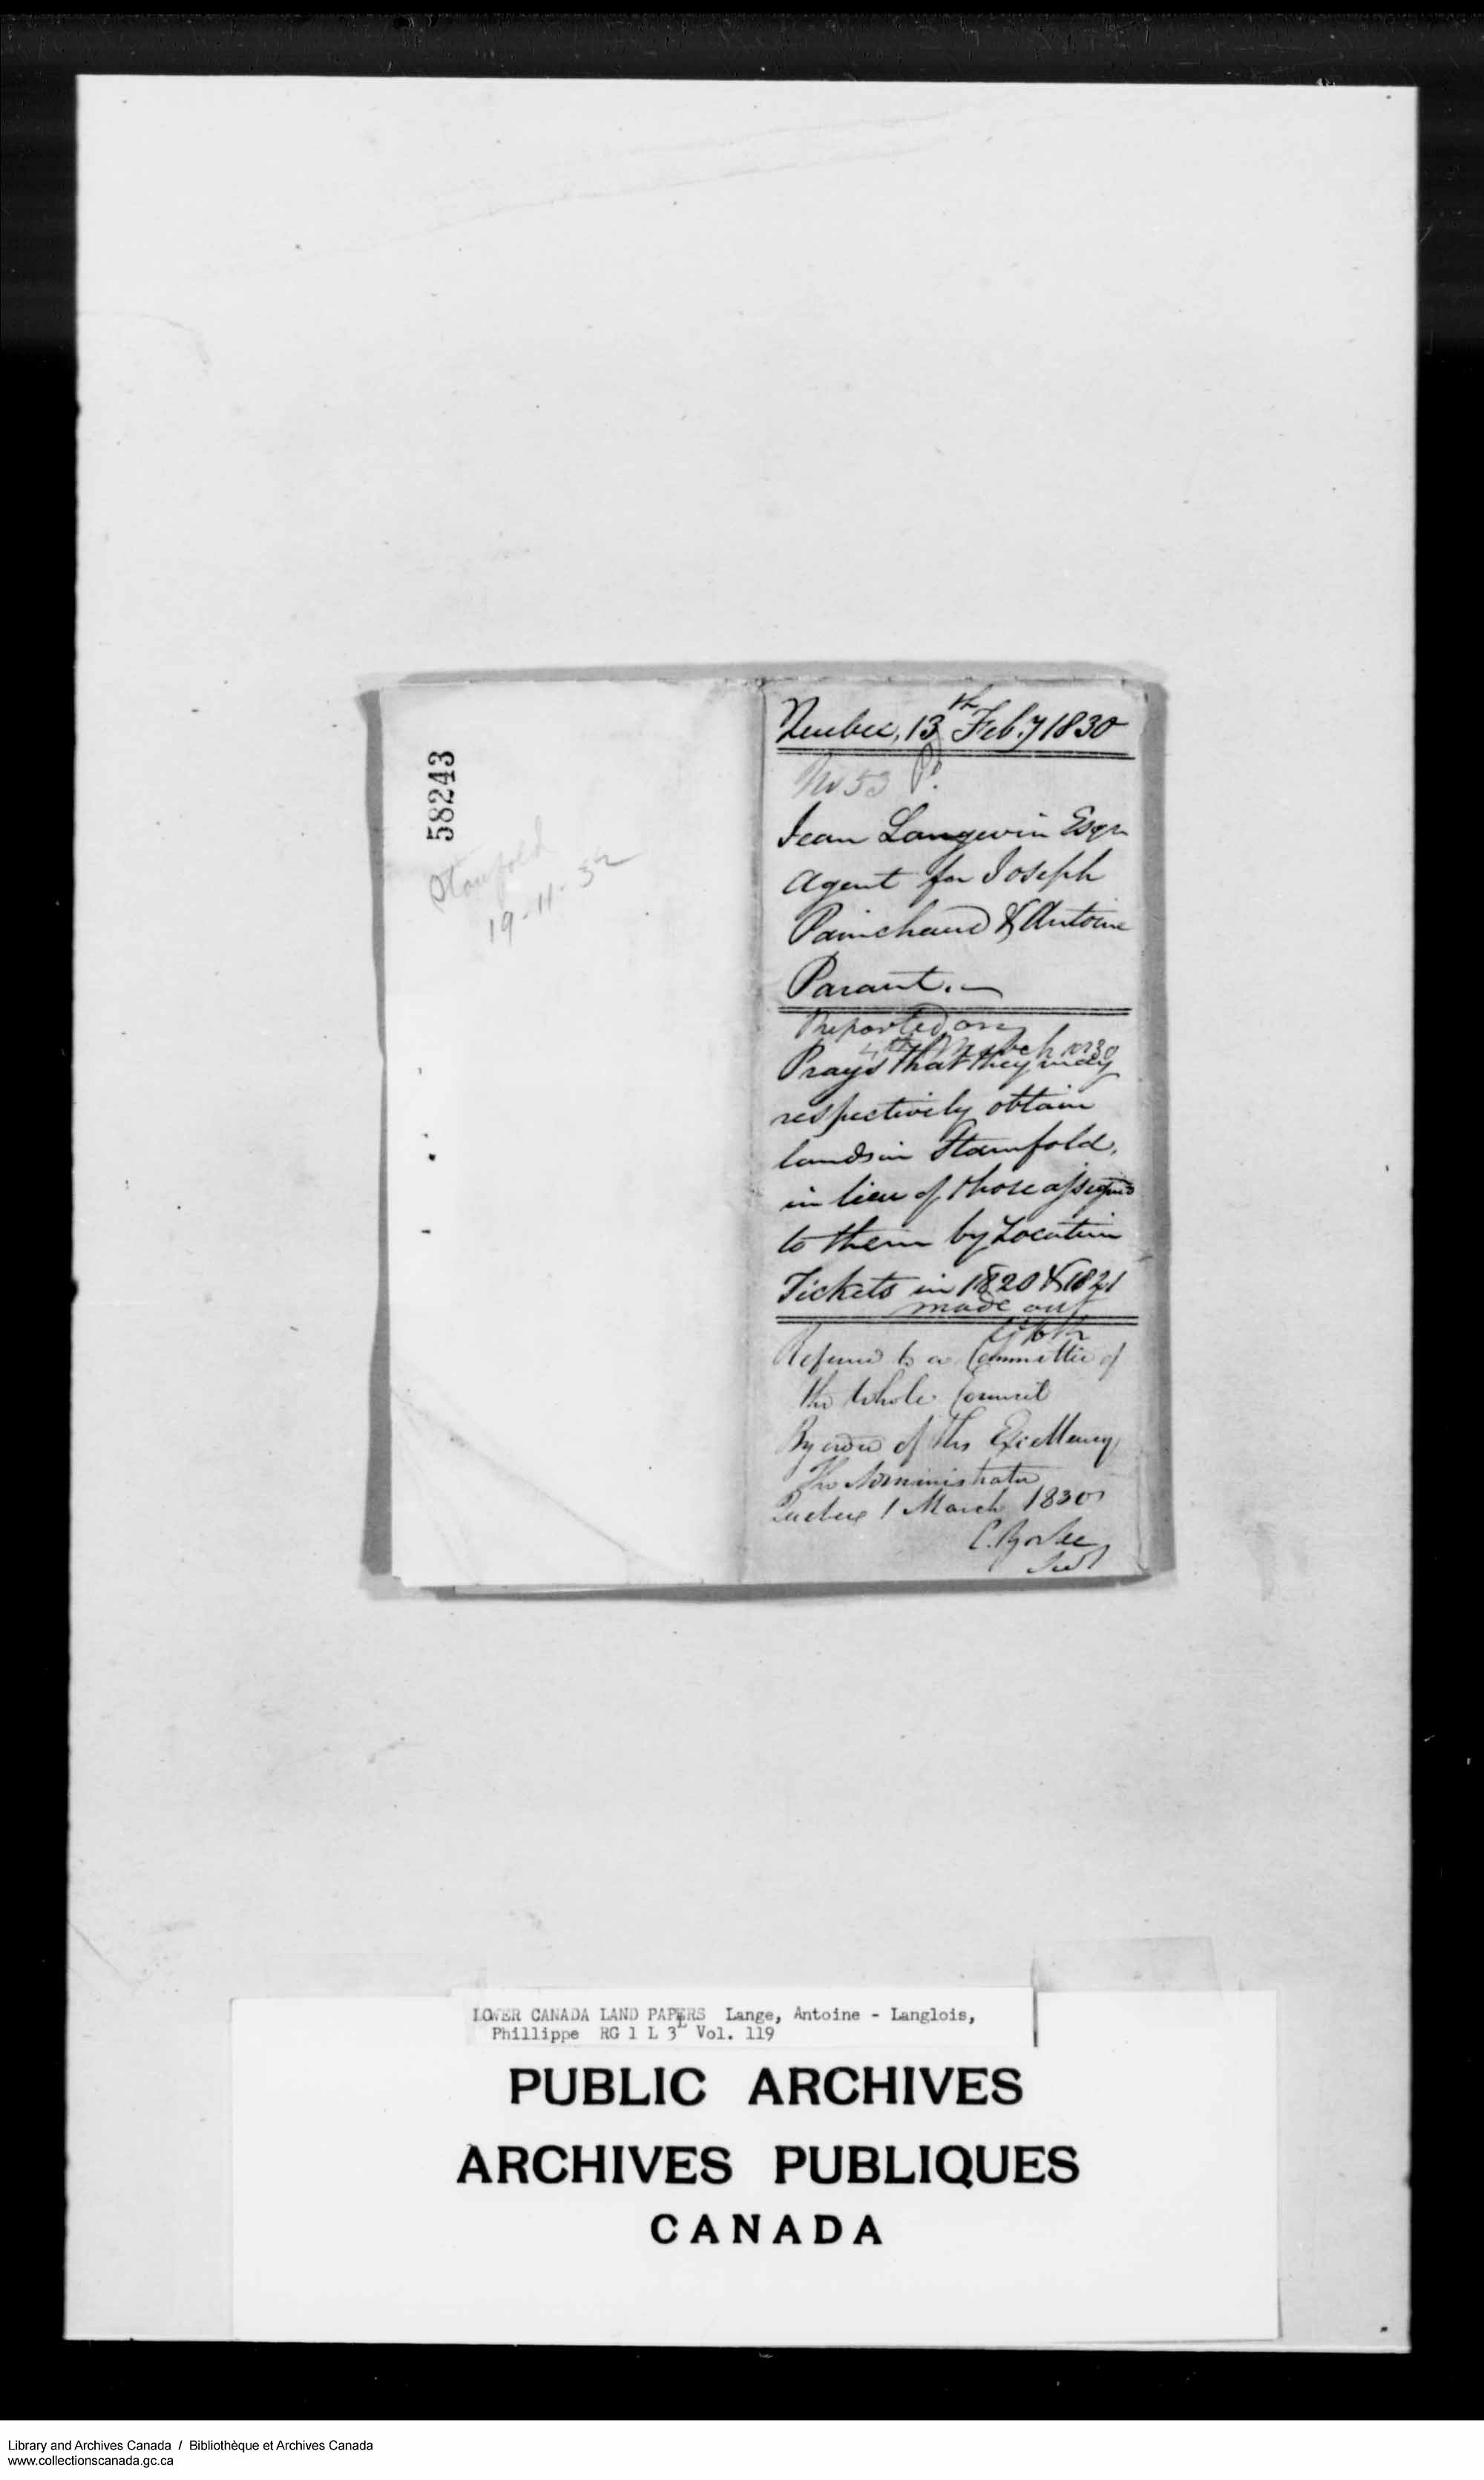 58243
Stanfold
19-11-32
Quebec, 13th Feb:y 1830
No 53 P.
Jean Langevin Esqr
Agent for Joseph
Painchaud & Antoine
Parant. —
Reported on
4th March 1830
Prays that they may
respectively obtain
lands in Stanfold,
in lieu of those assigned
to them by Location
Tickets in 1820 & 1821
made out
Referred to a Committee of
the whole Council
By order of His Excellency
The Administrator
Quebec 1 March 1830
C. Yorke
Secy
LOWER CANADA LAND PAPERS Lange, Antoine - Langlois,
Phillippe RG 1 L 3L Vol. 119
PUBLIC ARCHIVES
ARCHIVES PUBLIQUES
CANADA
Library and Archives Canada / Bibliothèque et Archives Canada
www.collectionscanada.gc.ca